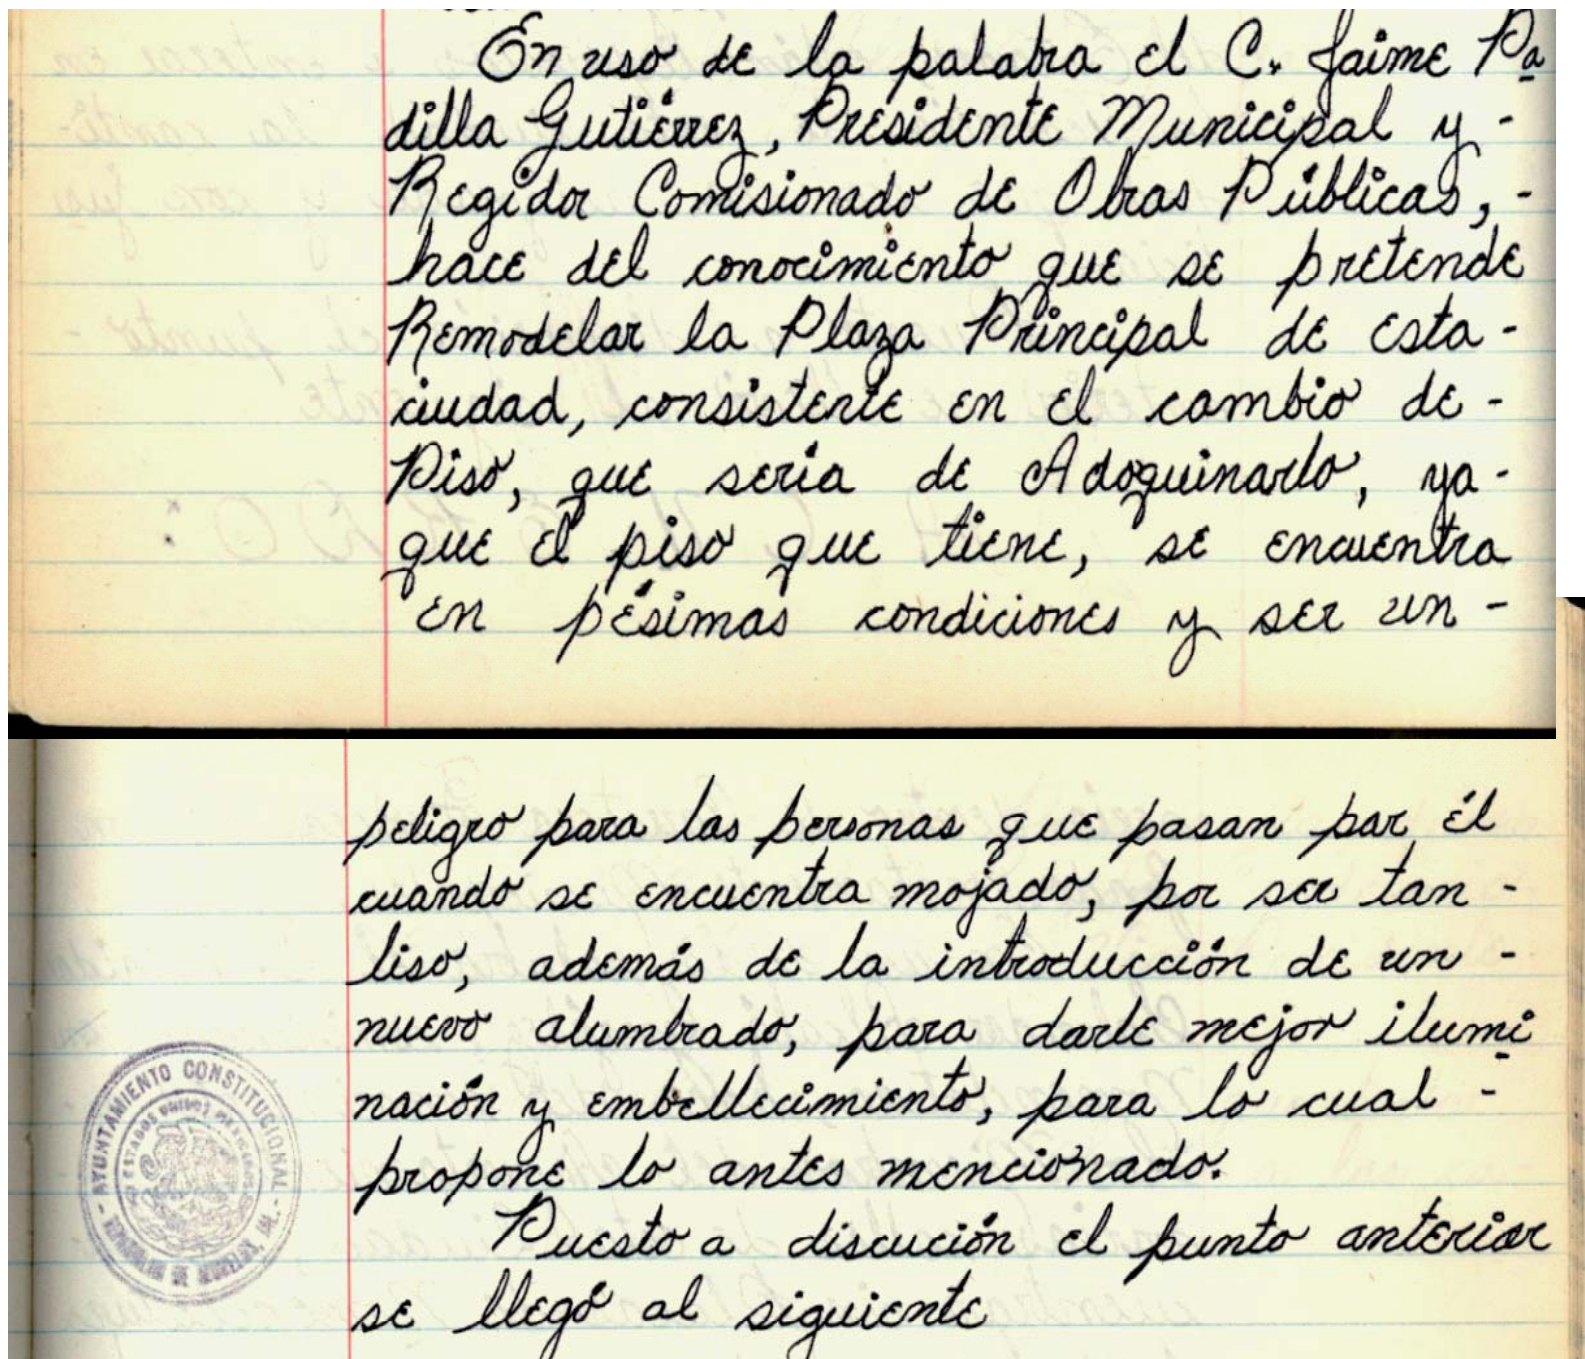 En uso de la palabra el C. Jaime Pa
dilla Gutiérrez, Presidente Municipal y -
Regidor Comisionado de Obras Públicas, -
hace del conocimiento que se pretende
Remodelar la Plaza Principal de esta -
ciudad, consistente en el cambio de -
Piso, que sería de Adoquinarlo, ya -
que el piso que tiene, se encuentra
en pésimas condiciones y ser un -
peligro para las personas que pasan por él
cuando se encuentra mojado, por ser tan -
liso, además de la introducción de un -
nuevo alumbrado, para darle mejor ilumi
nación y embellecimiento, para lo cual -
propone lo antes mencionado.
Puesto a discución el punto anterior
se llegó al siguiente
- AYUNTAMIENTO CONSTITUCIONAL -
ESTADOS UNIDOS MEXICANOS
DE MORELOS, JAL.